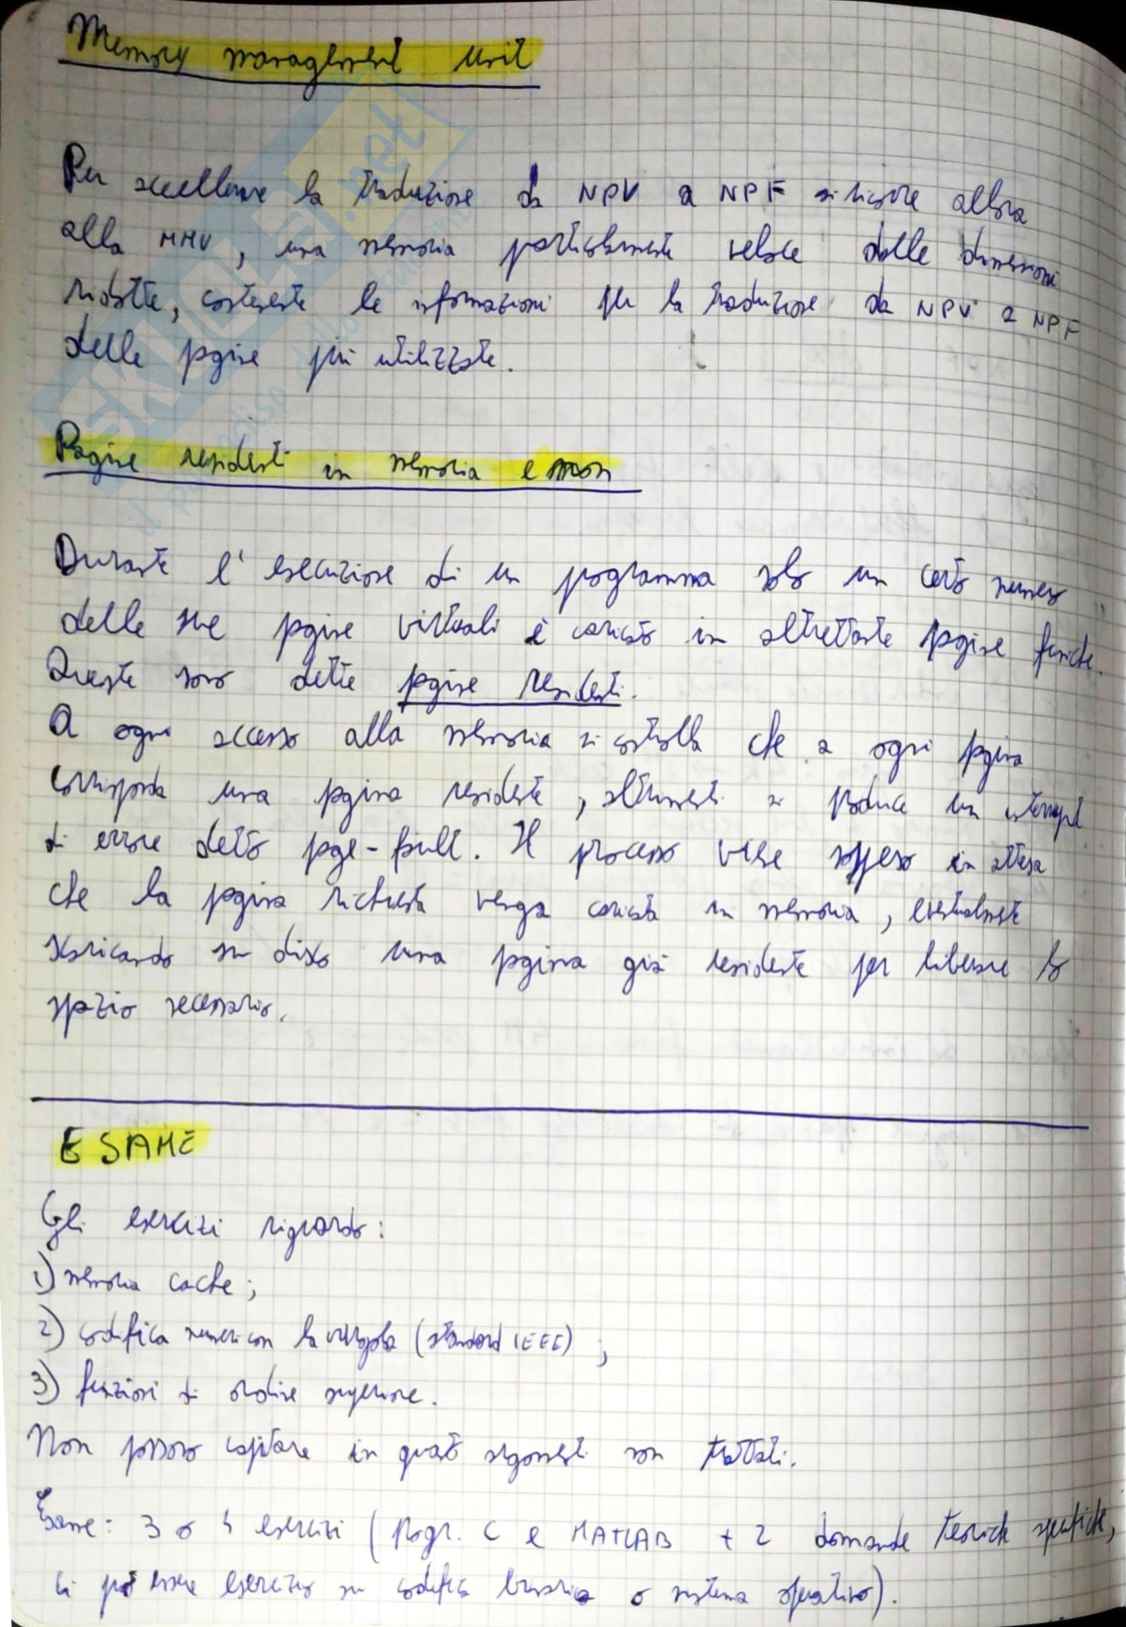 Memory management unit
Per accellerare la traduzione da NPV a NPF si ricorre allora
alla MMU, una memoria particolarmente veloce dalle dimensioni
ridotte, contenente le informazioni per la traduzione da NPV a NPF
delle pagine più utilizzate.
Pagine residenti in memoria e non
Durante l'esecuzione di un programma solo un certo numero
delle sue pagine virtuali è caricato in altrettante pagine fisiche.
Queste sono dette pagine residenti.
A ogni accesso alla memoria si controlla che a ogni pagina
corrisponda una pagina residente, altrimenti si produce un interrupt
di errore detto page-fault. Il processo viene sospeso in attesa
che la pagina richiesta venga caricata in memoria, eventualmente
scaricando su disco una pagina già residente per liberare lo
spazio necessario.
ESAME
Gli esercizi riguardo:
1) memoria cache;
2) codifica numeri con la virgola (standard IEEE);
3) funzioni di ordine superiore.
Non possono capitare in quanto argomenti non trattati.
Esame: 3 o 4 esercizi (progr. C e MATLAB + 2 domande teoriche specifiche,
ci può essere esercizio su codifica binaria o sistema operativo).
SKUOLA.net